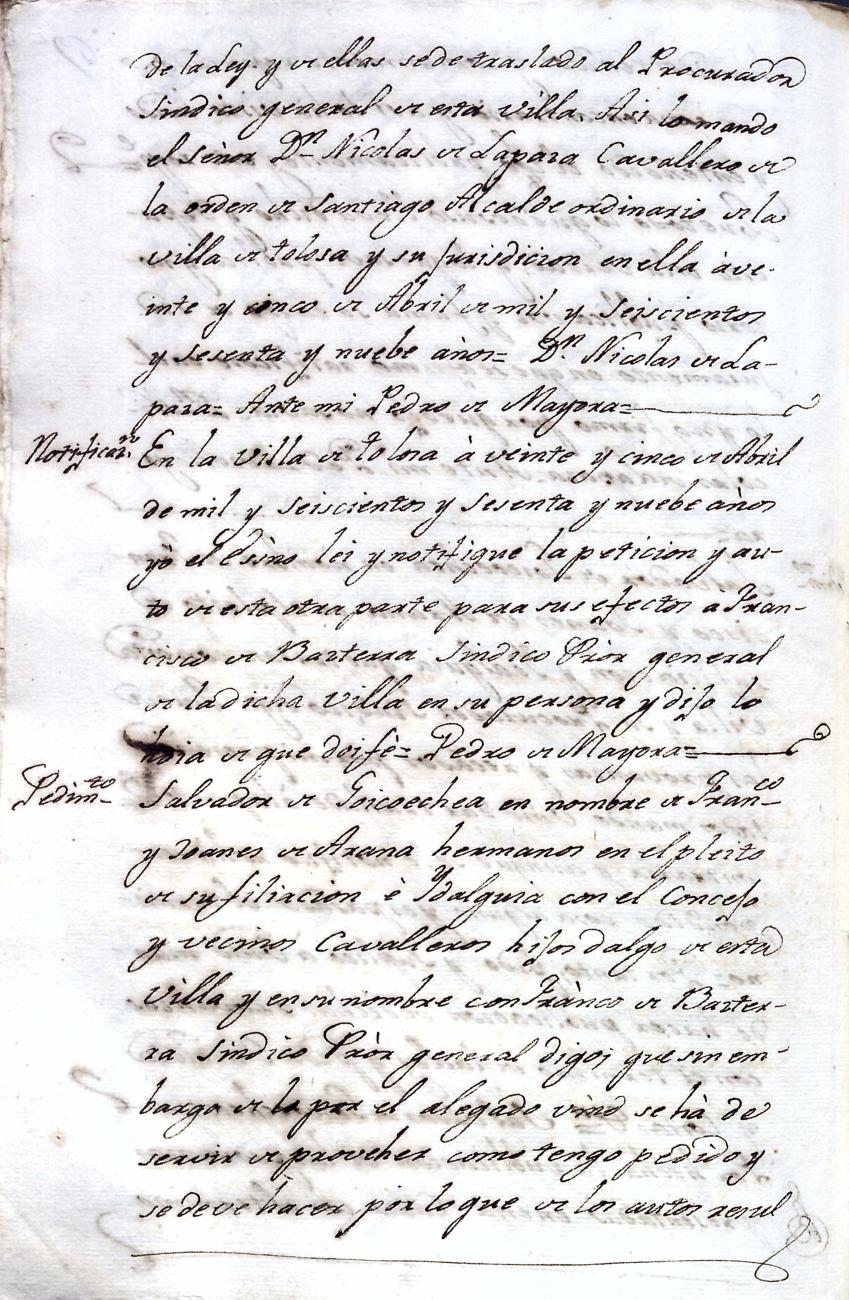 de la Ley. y de ellas se de traslado al Procurador
Sindico general de esta Villa. Asi lo mando
el señor Dn. Nicolas de Lapaza Cavallero de
la orden de Santiago Alcalde ordinario de la
villa de tolosa y su Jurisdicion en ella à ve-
inte y cinco de Abril de mil y Seiscientos
y sesenta y nuebe años= Dn. Nicolas de La-
paza= Ante mi Pedro de Mayora=
Notificazn. En la Villa de tolosa à veinte y cinco de Abril
de mil y seiscientos y sesenta y nuebe años
yò el Essno lei y notifique la peticion y au-
to de esta otra parte para sus efectos à Fran-
cisco de Bazterra Sindico Pròr general
de la dicha Villa en su persona y dijo lo
hoia de que doi fè= Pedro de Mayora=
Pedimto. Salvador de Goicoechea en nombre de Franco
y Joanes de Arana hermanos en el pleito
de su filiacion è Ydalguia con el Concejo
y vecinos Cavalleros hijos dalgo de esta
Villa y en su nombre con Frànco de Bazter-
ra Sindico Pròr general digo; que sin em-
bargo de lo por el alegado vmd se hà de
servir de proveher como tengo pedido y
se deve hacer por lo que de los autos resul